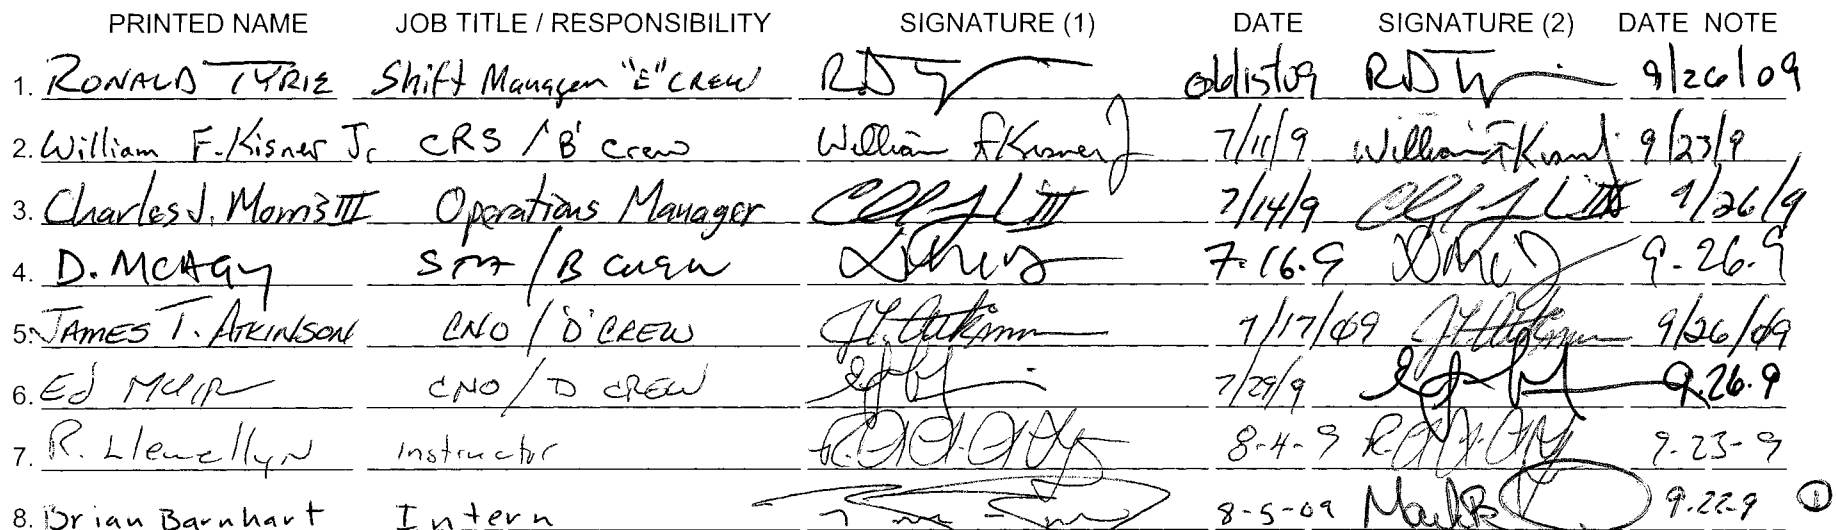 PRINTED NAME JOB TITLE / RESPONSIBILITY SIGNATURE (1) DATE SIGNATURE (2) DATE NOTE
1. RONALD TYRIE Shift Manager "E" CREW RDT 06/15/09 RDT 9/26/09
2. William F. Kisner Jr CRS / 'B' Crew William F Kisner J 7/11/9 William F Kisner J 9/23/9
3. Charles J. Morris III Operations Manager III 7/14/9 III 9/26/9
4. D. MCAGY STA / B CREW 7.16.9 9.26.9
5. JAMES T. ATKINSON CNO / 'D' CREW J.T. Atkinson 7/17/09 J.T. Atkinson 9/26/09
6. Ed MUIR CNO / D CREW 7/29/9 9.26.9
7. R. Llewellyn instructor 8-4-9 9-23-9
8. Brian Barnhart Intern 8-5-09 9.22.9 ①